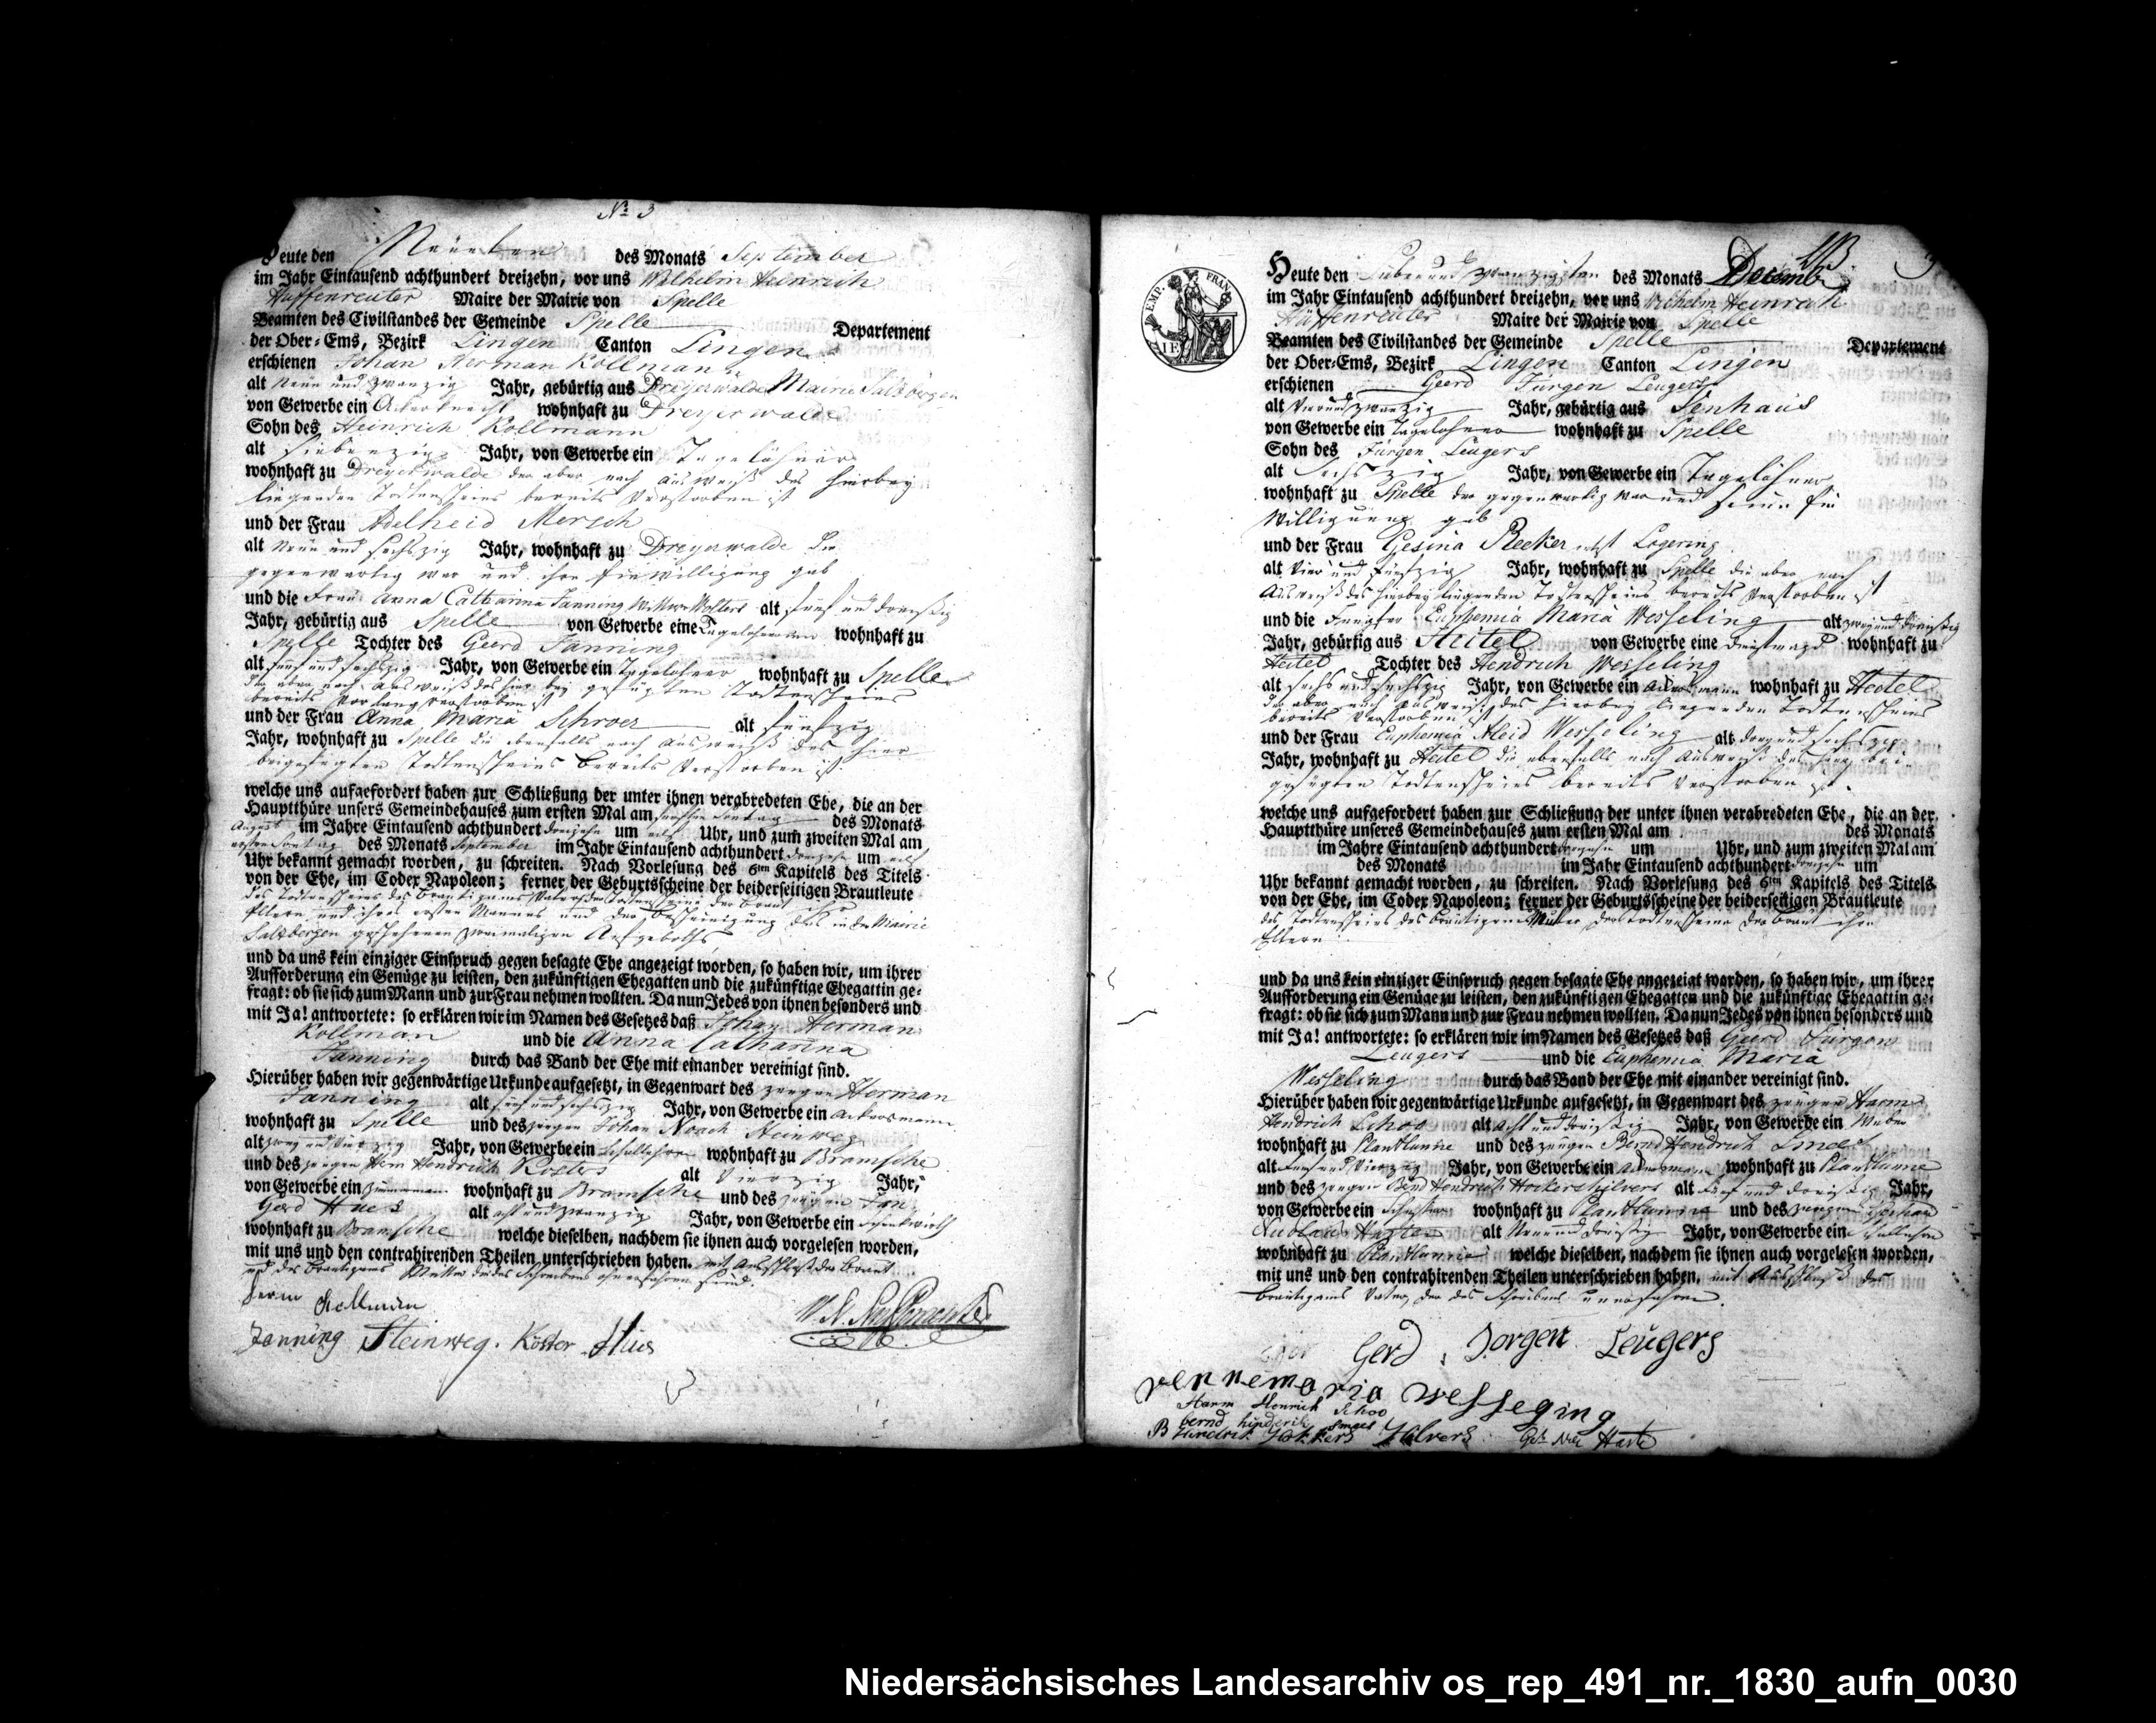 No 3
Heute den Neunten des Monats September
im Jahr Eintausend achthundert dreizehn, vor uns Wilhelm Heinrich
Maire der Mairie von Spelle
Beamten des Civilstandes der Gemeinde Spelle Departement
der Ober-Ems, Bezirk Lingen Canton Lingen
erschienen Johan Herman Kollman
alt Neün und zwanzig Jahr, gebürtig aus Dreyerwalde Mairie Salzbergen
von Gewerbe ein Ackerknecht wohnhaft zu Dreyerwalde
Sohn des Heinrich Kollmann
alt siebenzig Jahr, von Gewerbe ein Tagelöhner
wohnhaft zu Dreyerwalde der aber nach ausweiß des hierbey
liegenden Todtenscheins bereits verstorben ist
und der Frau Adelheid Mersch
alt Neün und sechszig Jahr, wohnhaft zu Dreyerwalde die
gegenwartig war und ihre Einwilligung gab
und die Frau Anna Catharina Janning Wittwe Wolters alt fünf und dreißig
Jahr, gebürtig aus Spelle von Gewerbe eine wohnhaft zu
Spelle Tochter des Geerd Janning
alt fünf und sechszig Jahr, von Gewerbe ein Tagelöhner wohnhaft zu Spelle
der aber nach ausweiß des hier bey gefügten Todtenscheins
bereits verstorben ist
und der Frau Anna Maria Schroer alt fünfzig
Jahr, wohnhaft zu Spelle die ebenfalls nach ausweiß des hier
beigefügten Todtenscheins bereits verstorben ist
welche uns aufgefordert haben zur Schließung der unter ihnen verabredeten Ehe, die an der
Hauptthüre unsers Gemeindehauses zum ersten Mal am des Monats
August im Jahre Eintausend achthundert dreizehn um eilf Uhr, und zum zweiten Mal am
ersten Sontag des Monats September im Jahr Eintausend achthundert dreizehn um eilf
Uhr bekannt gemacht worden, zu schreiten. Nach Vorlesung des 6ten Kapitels des Titels
von der Ehe, im Codex Napoleon; ferner der Geburtsscheine der beiderseitigen Brautleute
des Todtenscheins des Brautigams Vaters der Todtenscheine der Braut ihre
Eltern und ihres ersten Mannes und der Bescheinigung des in der Mairie
Salzbergen geschehenen zweimaligen Aufgeboths
und da uns kein einziger Einspruch gegen besagte Ehe angezeigt worden, so haben wir, um ihrer
Aufforderung ein Genüge zu leisten, den zukünftigen Ehegatten und die zukünftige Ehegattin ge-
fragt: ob sie sich zum Mann und zur Frau nehmen wollten. Da nun Jedes von ihnen besonders und
mit Ja! antwortete: so erklären wir im Namen des Gesetzes daß Johan Herman
Kollman und die Anna Catharina
Janning durch das Band der Ehe mit einander vereinigt sind.
Hierüber haben wir gegenwärtige Urkunde aufgesetzt, in Gegenwart des zeugen Herman
Janning alt fünf und sechszig Jahr, von Gewerbe ein Ackersmann
wohnhaft zu Spelle und des zeugen Johan Steinweg
alt zwey und vierzig Jahr, von Gewerbe ein Schullehrer wohnhaft zu Bramsche
und des zeugen Herm Hendrich Kosters alt Vierzig Jahr,
von Gewerbe ein wohnhaft zu Bramsche und des zeugen Jan
Gerd Hues alt acht und zwanzig Jahr, von Gewerbe ein
wohnhaft zu Bramsche welche dieselben, nachdem sie ihnen auch vorgelesen worden,
mit uns und den contrahirenden Theilen unterschrieben haben. mit Ausschluß der Braut
und des Brautigams Mutter die des Schreibens ohnerfahren sind.
Herm Kollman
Janning Steinweg. Köster Hues
Heute den Sieben und zwanzigsten des Monats Decemb
im Jahr Eintausend achthundert dreizehn, vor uns Wilhelm Heinrich
Maire der Mairie von Spelle
Beamten des Civilstandes der Gemeinde Spelle Departement
der Ober-Ems, Bezirk Lingen Canton Lingen
erschienen Geerd Jürgen Leugers
alt Vier und zwanzig Jahr, gebürtig aus Venhaus
von Gewerbe ein Tagelöhner wohnhaft zu Spelle
Sohn des Jürgen Leugers
alt Sechszig Jahr, von Gewerbe ein Tagelöhner
wohnhaft zu Spelle der gegenwartig war und seine Ein
Willigung gab
und der Frau Gesina Recker
alt Vier und Fünfzig Jahr, wohnhaft zu Spelle die aber nach
Ausweiß des hierbey liegenden Todtenscheins bereits Verstorben ist
und die Jungfer Euphemia Maria Wesseling alt zwey und dreißig
Jahr, gebürtig aus Heitel von Gewerbe eine Dienstmagd wohnhaft zu
Heitel Tochter des Hendrich Wesseling
alt sechs und sechszig Jahr, von Gewerbe ein Ackersmann wohnhaft zu Heitel
der aber nach Ausweiß des hierbey liegenden Todtenscheins
bereits Verstorben ist
und der Frau Euphemia Aleid Wesseling alt drey und sechszig
Jahr, wohnhaft zu Heitel die ebenfalls nach Ausweiß des hier bei
gefügten Todtenscheins bereits Verstorben ist.
welche uns aufgefordert haben zur Schließung der unter ihnen verabredeten Ehe, die an der
Hauptthüre unseres Gemeindehauses zum ersten Mal am des Monats
im Jahre Eintausend achthundert dreizehn um Uhr, und zum zweiten Mal am
des Monats im Jahr Eintausend achthundert dreizehn um
Uhr bekannt gemacht worden, zu schreiten. Nach Vorlesung des 6ten Kapitels des Titels
von der Ehe, im Codex Napoleon; ferner der Geburtsscheine der beiderseitigen Brautleute
des Todtenscheins des Bräutigams Mutter der Todtenscheine der Braut ihre
Eltern
und da uns kein einziger Einspruch gegen besagte Ehe angezeigt worden, so haben wir, um ihrer
Aufforderung ein Genüge zu leisten, den zukünftigen Ehegatten und die zukünftige Ehegattin ge-
fragt: ob sie sich zum Mann und zur Frau nehmen wollten. Da nun Jedes von ihnen besonders und
mit Ja! antwortete: so erklären wir im Namen des Gesetzes daß Geerd Jürgen
Leugers und die Euphemia Maria
Wesseling durch das Band der Ehe mit einander vereinigt sind.
Hierüber haben wir gegenwärtige Urkunde aufgesetzt, in Gegenwart des zeugen Harm
Hendrich Schoo alt acht und dreißig Jahr, von Gewerbe ein Weber
wohnhaft zu Plantlunne und des zeugen Bernd Hendrich Smees
alt fünf und Vierzig Jahr, von Gewerbe ein Ackersmann wohnhaft zu Plantlunne
und des zeugen Bernd Hendrich alt fünf und dreißig Jahr,
von Gewerbe ein wohnhaft zu Plantlunne und des zeugen
Harte alt Neun und dreißig Jahr, von Gewerbe ein
wohnhaft zu Plantlunne welche dieselben, nachdem sie ihnen auch vorgelesen worden,
mit uns und den contrahirenden Theilen unterschrieben haben. mit Ausschluß des
Bräutigams Vater, der des Schreibens unerfahren.
Gerd Jorgen Leugers
vennemaria wesseging
Harm Henrich Schoo
bernd hinderik Smees
B Hindrik Hilvers Harte
EMP. FRAN
Niedersächsisches Landesarchiv os_rep_491_nr._1830_aufn_0030